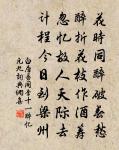 花時同醉破春愁
醉折花枝作酒籌
忽憶故人天際去
計程今日到梁州
白居易同李十一醉憶
元九 詞典網集